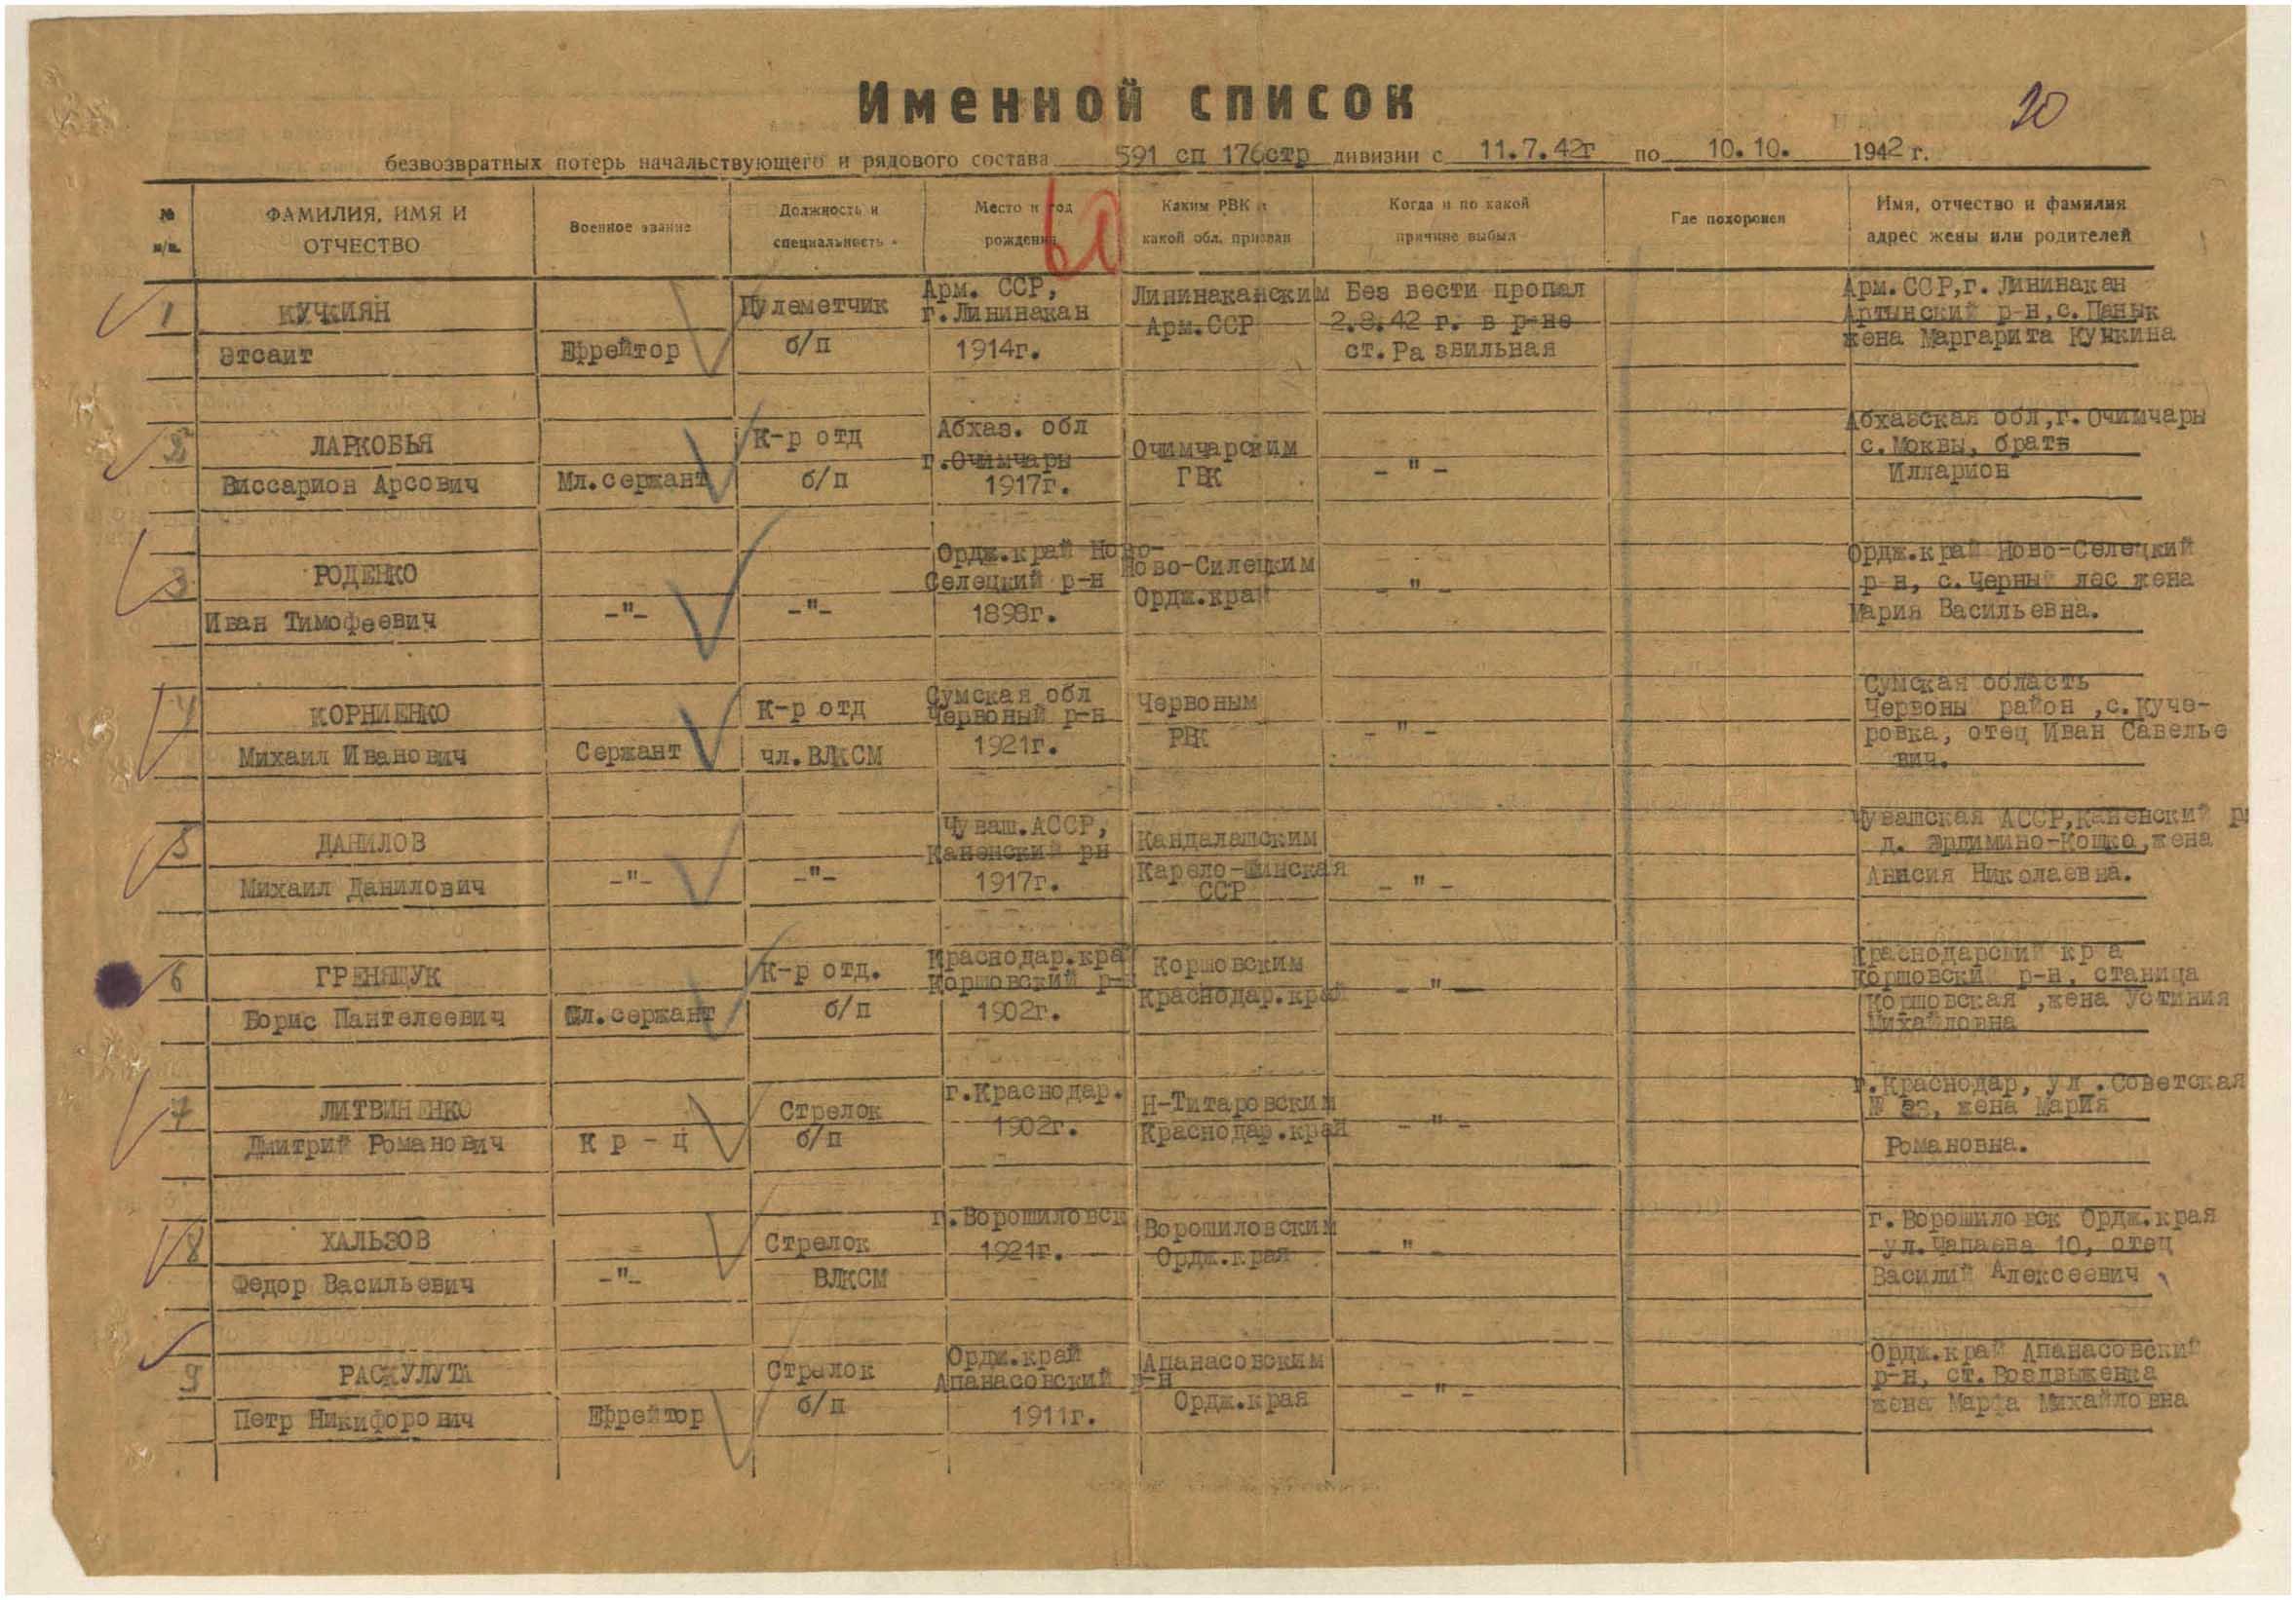 20
Именной список
безвозвратных потерь начальствующего и рядового состава 591 сп 176стр дивизии с 11.7.42г по 10.10. 1942 г.
№ п/п.
ФАМИЛИЯ, ИМЯ И ОТЧЕСТВО
Военное звание
Должность и специальность
Место и год рождения
Каким РВК и какой обл. призван
Когда и по какой причине выбыл
Где похоронен
Имя, отчество и фамилия адрес жены или родителей
1
КУЧКИЯН
Этсаит
Ефрейтор
Пулеметчик
б/п
Арм. ССР,
г.Лининакан
1914г.
Лининаканским
Арм.ССР
Без вести пропал
2.8.42 г. в р-не
ст.Развильная
Арм.ССР,г. Лининакан
Артынский р-н,с. Паньк
жена Маргарита Кучкина
2
ЛАРКОБЬЯ
Виссарион Арсович
Мл.сержант
К-р отд
б/п
Абхаз. обл
г.Очимчары
1917г.
Очимчарским
ГВК
- " -
Абхазская обл,г.Очимчары
с. Моквы, брать
Илларион
3
РОДЕНКО
Иван Тимофеевич
-"-
-"-
Ордж.край Ново-
Селецкий р-н
1898г.
Ново-Силецким
Ордж.край
- " -
Ордж.край Ново-Селецкий
р-н, с.Черный лес жена
Мария Васильевна.
4
КОРНИЕНКО
Михаил Иванович
Сержант
К-р отд
чл.ВЛКСМ
Сумская обл
Червоный р-н
1921г.
Червоным
РВК
- " -
Сумская область
Червоный район ,с.Куче-
ровка, отец Иван Савелье
вич.
5
ДАНИЛОВ
Михаил Данилович
-"-
-"-
Чуваш.АССР,
Каненский рн
1917г.
Кандалашским
Карело-Финская
ССР
- " -
Чувашская АССР,Каненский р
д. Эрдимино-Кошко,жена
Анисия Николаевна.
6
ГРЕНЯЩУК
Борис Пантелеевич
Мл.сержант
К-р отд.
б/п
Краснодар.край
Коршовский р-н
1902г.
Коршовским
Краснодар.край
- " -
Краснодарский кр а
Коршовский р-н, станица
Коршовская ,жена Устиния
Михайловна
7
ЛИТВИНЕНКО
Дмитрий Романович
К р - ц
Стрелок
б/п
г.Краснодар.
1902г.
Н-Титаровским
Краснодар.край
- " -
г.Краснодар, ул .Советская
№ 33, жена Мария
Романовна.
8
ХАЛЬЗОВ
Федор Васильевич
-"-
Стрелок
ВЛКСМ
г.Ворошиловск
1921г.
Ворошиловским
Ордж.края
- " -
г. Ворошиловск Ордж.края
ул.Чапаева 10, отец
Василий Алексеевич
9
РАСКУЛУТА
Петр Никифорович
Ефрейтор
Стрелок
б/п
Ордж.край
Апанасовский р-н
1911г.
Апанасовским
Ордж.края
- " -
Ордж.край Апанасовский
р-н, ст.Воздвыженка
жена Марфа Михайловна